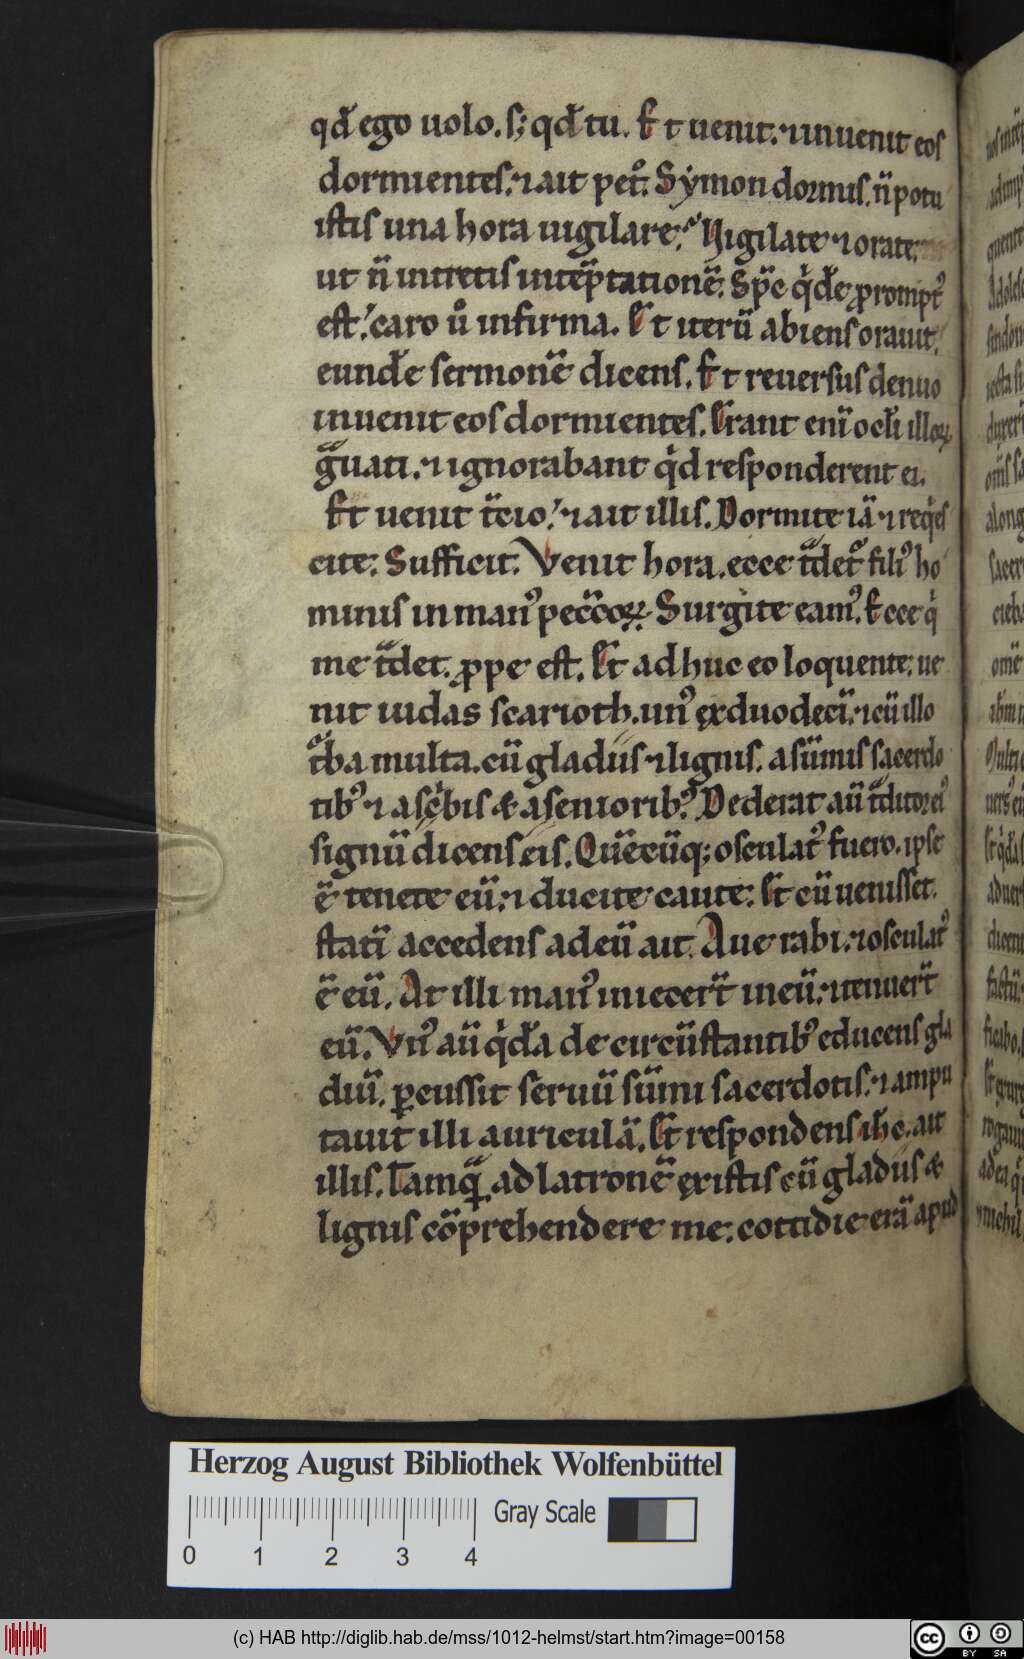 qđ ego uolo. s; qđ tu. Et uenit. ⁊ inuenit eos
dormientes. ⁊ ait pet͛. Symon dormis. n̄ potu
istis una hora uigilare? Vigilate ⁊ orate.
ut n̄ intretis intēptationē. Sp̄c qͥdē prompt᷒
est. caro ů infirma. Et iterū abiens orauit.
eundē sermonē dicens. Et reuersus denuo
inuenit eos dormientes. Erant enī ocłi illoꝝ
gͣuati. ⁊ ignorabant qͥd responderent ei.
Et uenit t̄cio. ⁊ ait illis. Dormite iā ⁊ reqͥes
cite. Sufficit. Venit hora. ecce tͣdet᷑ fili᷒ ho
minis in man᷒ peccōꝝ. Surgite eam᷒. Ecce qͥ
me tͣdet. ꝓpe est. Et adhuc eo loquente. ue
nit iudas scarioth. un᷒ ex duodecī. ⁊ cū illo
t᷑ba multa. cū gladiis ⁊ lignis. a sūmis sacerdo
tib᷒ ⁊ a scͥbis & a seniorib᷒. Dederat aū tͣditor ei᷒
signū dicens eis. Quēcūq; osculat᷒ fuero. ipse
ē tenete eū. ⁊ ducite caute. Et cū uenisset.
statī accedens ad eū ait. Aue rabi. ⁊ osculat᷒
ē eū. At illi man᷒ iniecer̄t in eū. ⁊ tenuer̄t
eū. Vn᷒ aū qͥdā de circūstantib᷒ educens gla
diū. ꝑcussit seruū sūmi sacerdotis. ⁊ ampu
tauit illi auriculā. Et respondens ih̄c. ait
illis. Tamqͣ̄ ad latronē existis cū gladiis &
lignis cōprehendere me. cottidie erā apud
Herzog August Bibliothek Wolfenbüttel
Gray Scale
0 1 2 3 4
(c) HAB http://diglib.hab.de/mss/1012-helmst/start.htm?image=00158
cc BY SA